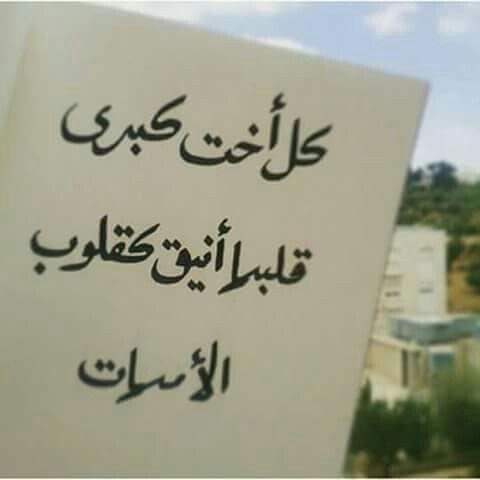 كل أخت كبرى
قلبها أنيق كقلوب
الأمهات